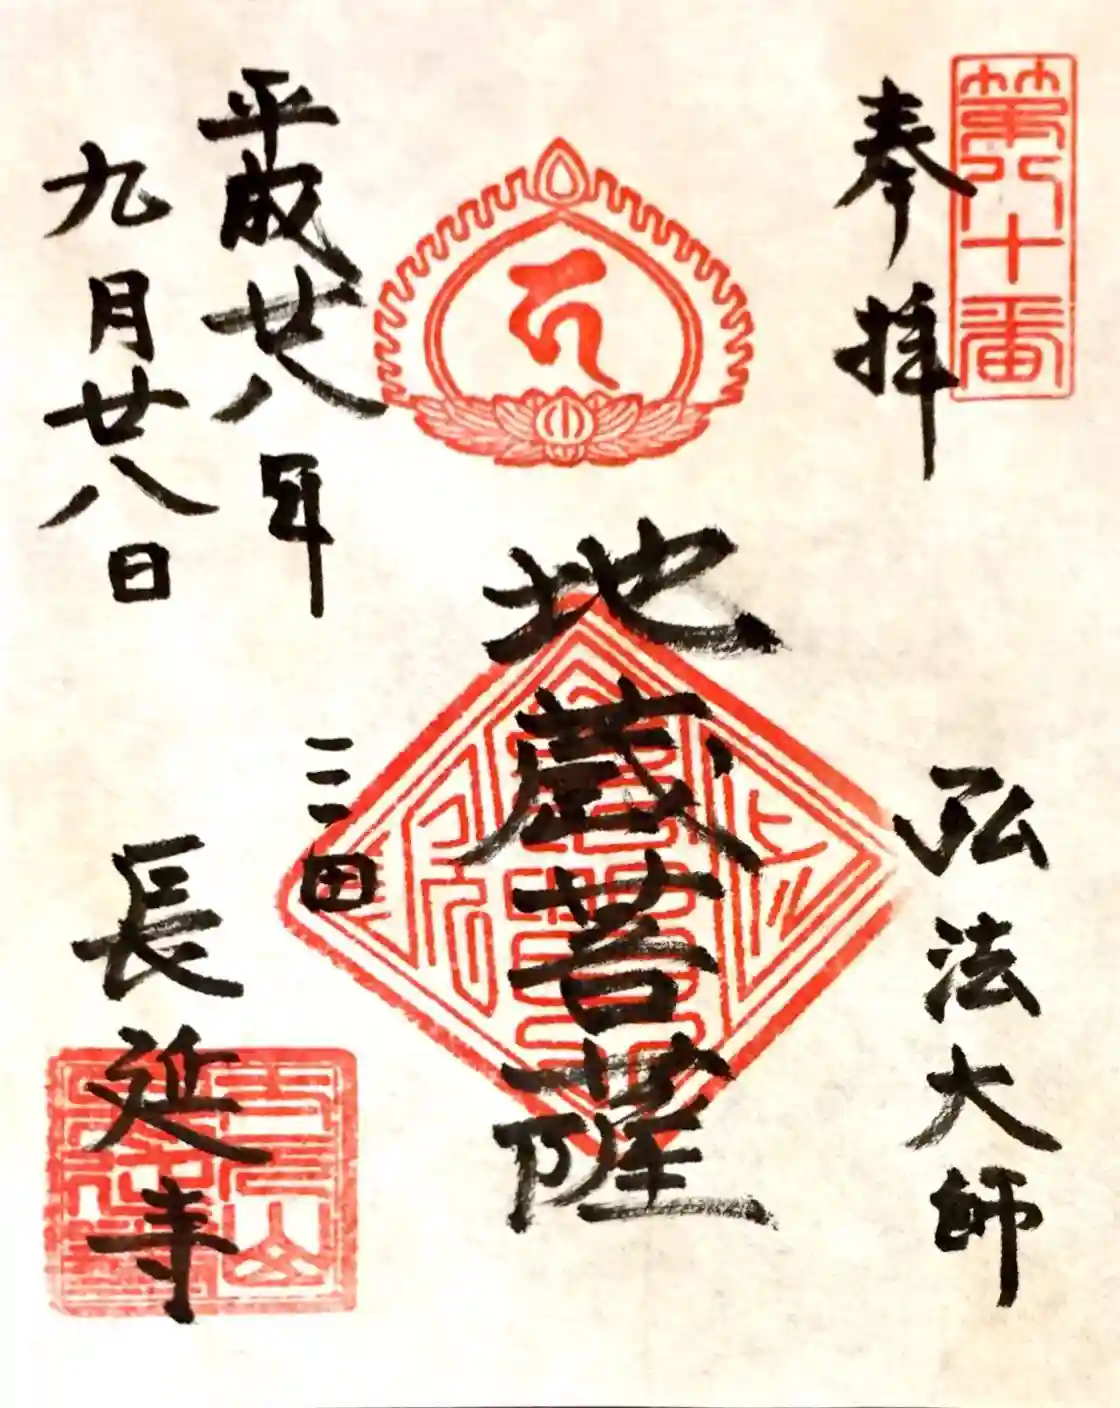 第八十番
奉拝
弘法大師
地蔵菩薩
三田
平成廿八年
九月廿八日
長延寺